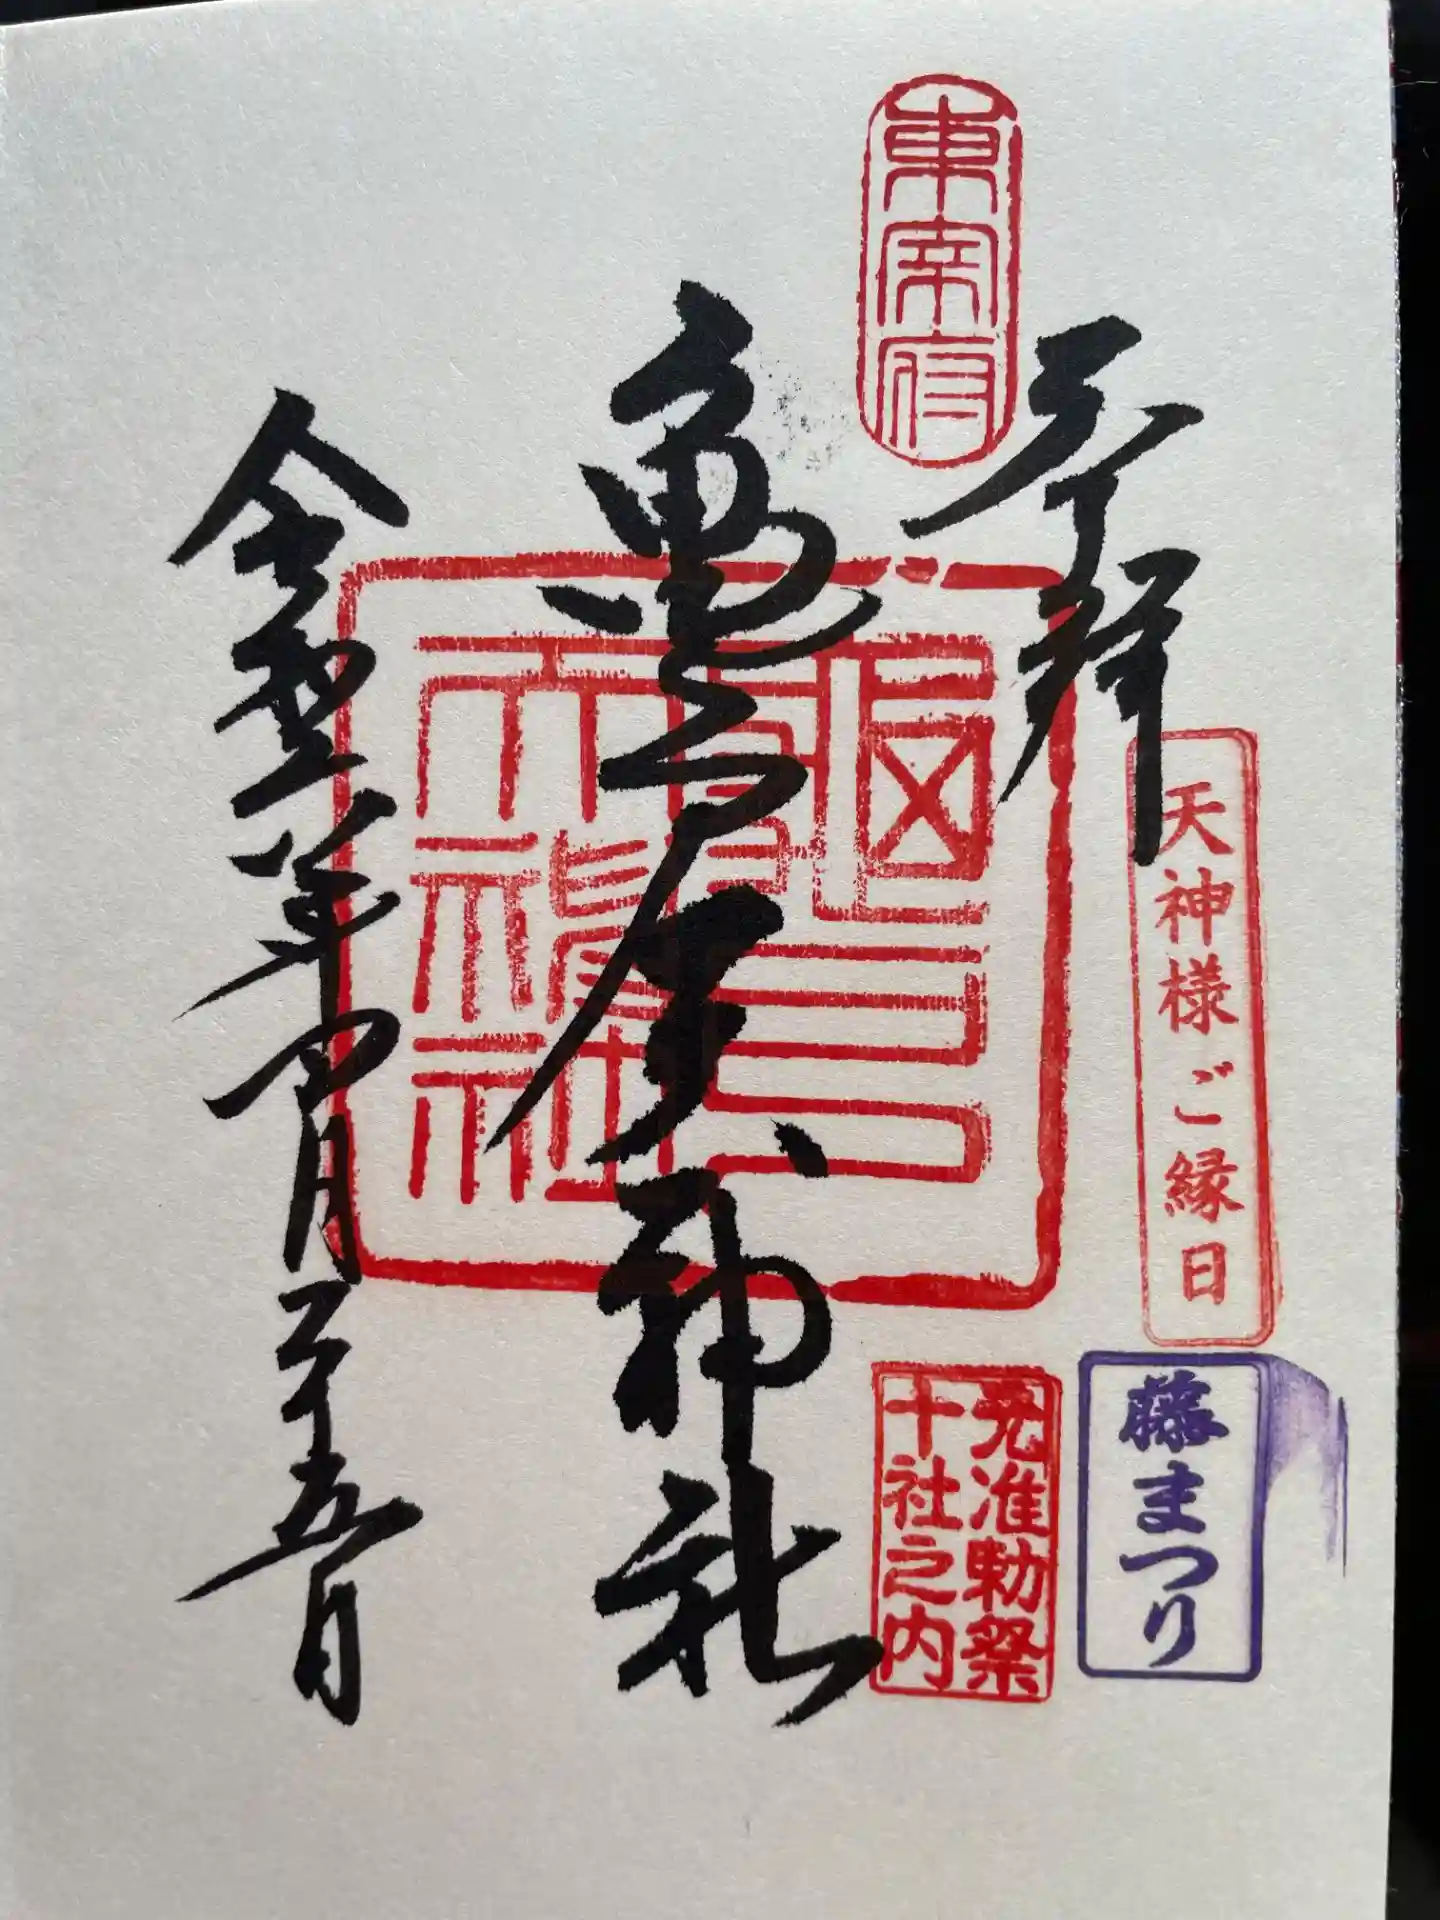 東宰府
奉拝
天神様ご縁日
藤まつり
元准勅祭
十社之内
亀戸天神社
令和六年四月二十五日